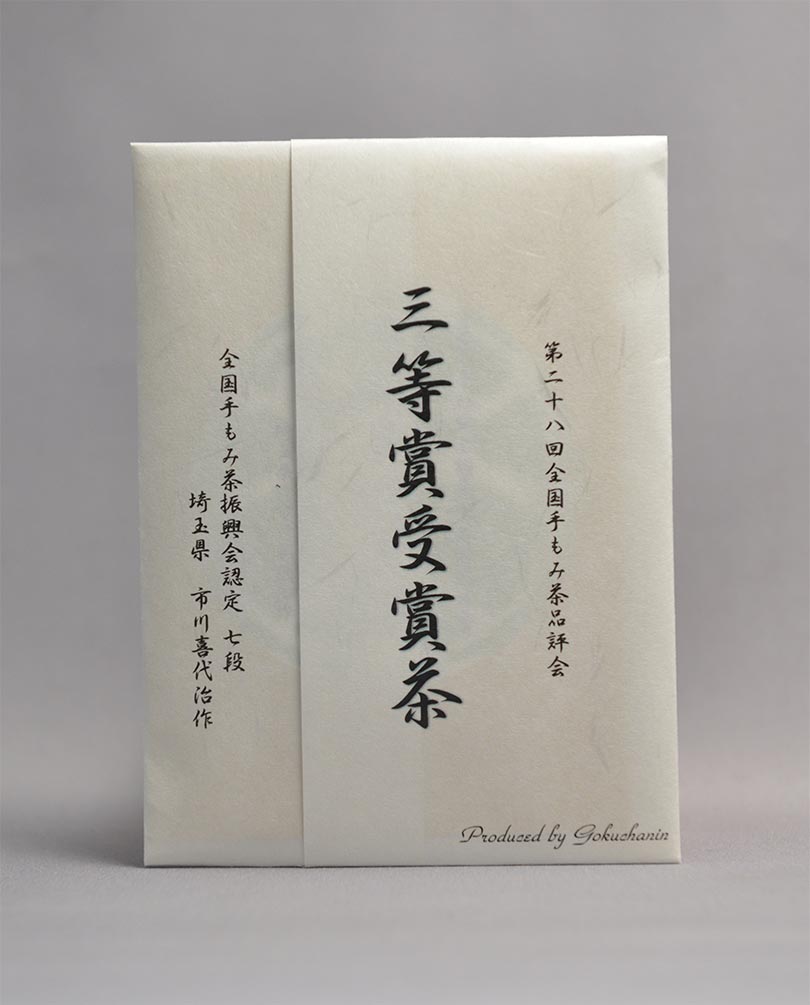 第二十八回全国手もみ茶品評会
三等賞受賞茶
全国手もみ茶振興会認定 七段
埼玉県 市川喜代治作
Produced by Gokuchanin